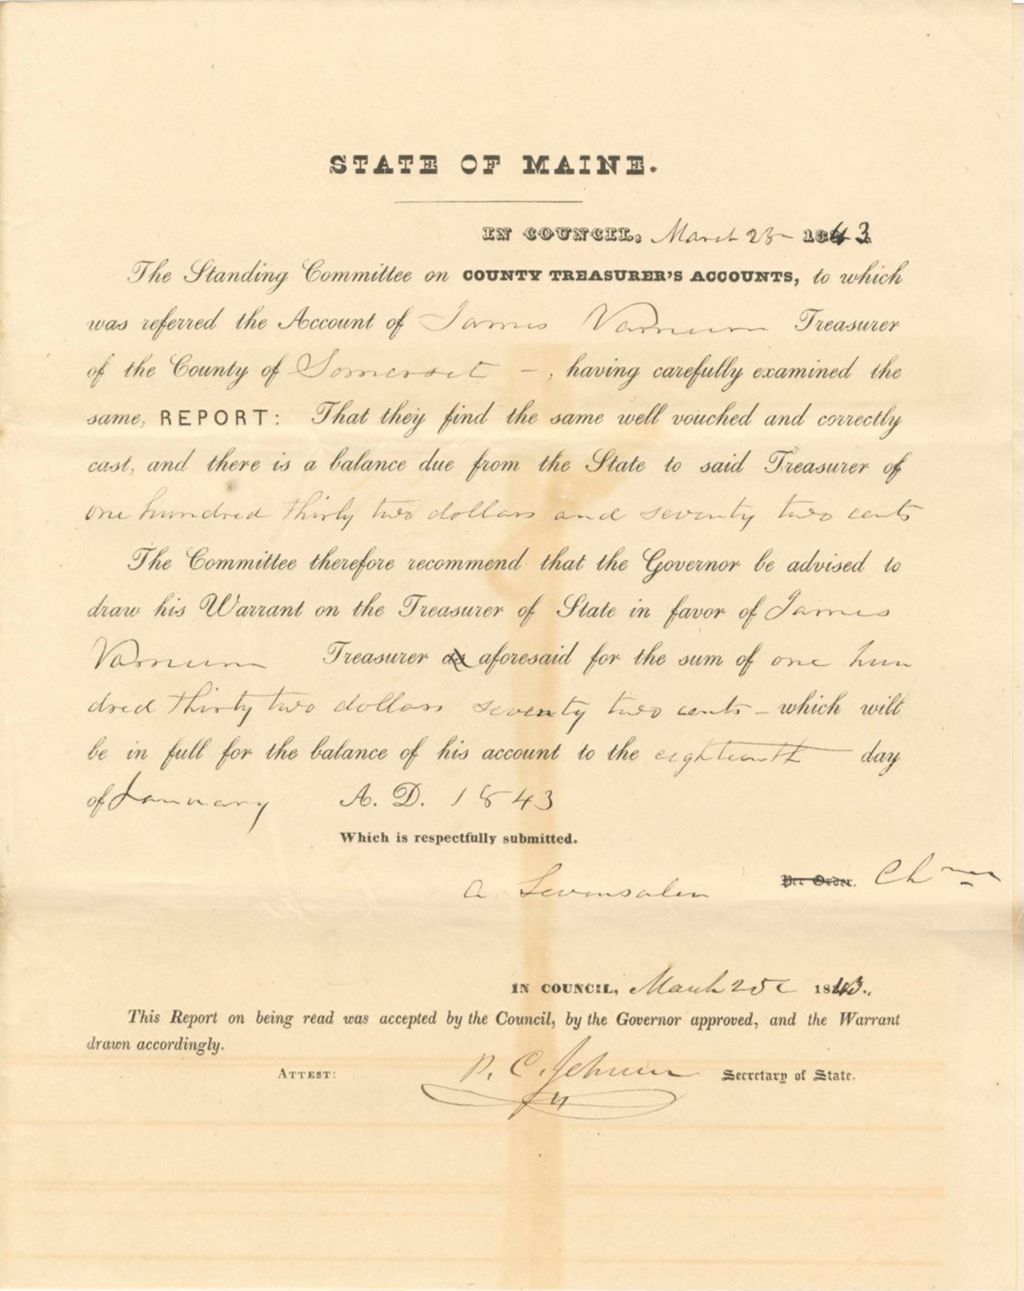 STATE OF MAINE.
IN COUNCIL, March 25 1843.
The Standing Committee on COUNTY TREASURER'S ACCOUNTS, to which
was referred the Account of James Varnum Treasurer
of the County of Somerset -, having carefully examined the
same, REPORT: That they find the same well vouched and correctly
cast, and there is a balance due from the State to said Treasurer of
one hundred thirty two dollars and seventy two cents
The Committee therefore recommend that the Governor be advised to
draw his Warrant on the Treasurer of State in favor of James
Varnum Treasurer as aforesaid for the sum of one hun
dred thirty two dollars seventy two cents - which will
be in full for the balance of his account to the eighteenth day
of January A. D. 1843
Which is respectfully submitted.
A Levensaler Per Order. Chm
IN COUNCIL, March 25 1843.
This Report on being read was accepted by the Council, by the Governor approved, and the Warrant
drawn accordingly.
ATTEST: P. C. Johnson Secretary of State.